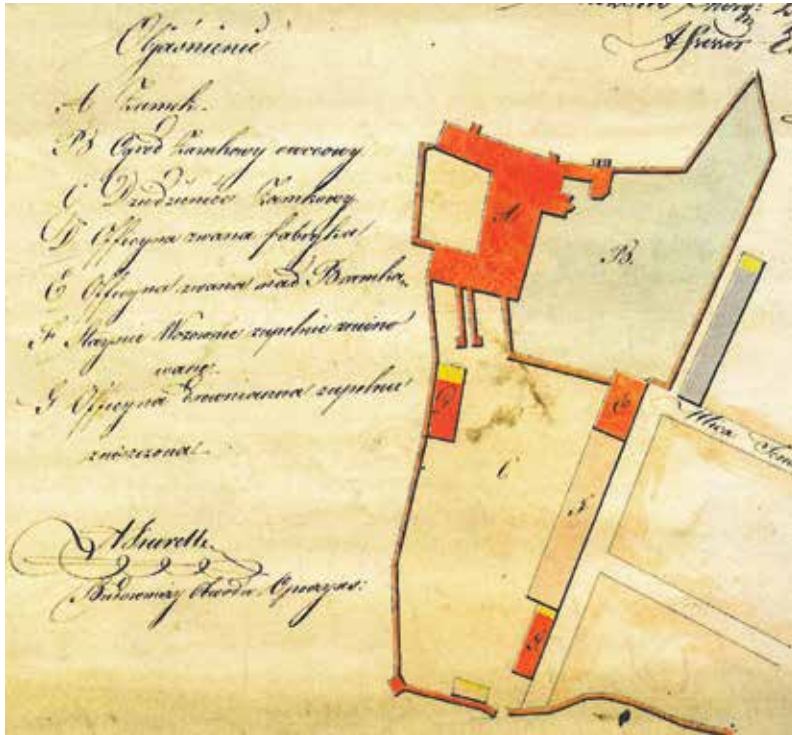 Objaśnienie
A Zamek.
B Ogrod Zamkowy owocowy
C Dziedziniec Zamkowy
D Officyna zwana fabryka
E Officyna zwana nad Bramką
F Staynie Wozownie zupełnie zruino
wane.
G Officyna drewnianna zupełnie
zniszczona.
Budowniczy Obwodu Opoczyn:
Assessor
A
B.
C
G
E
F
Ulica